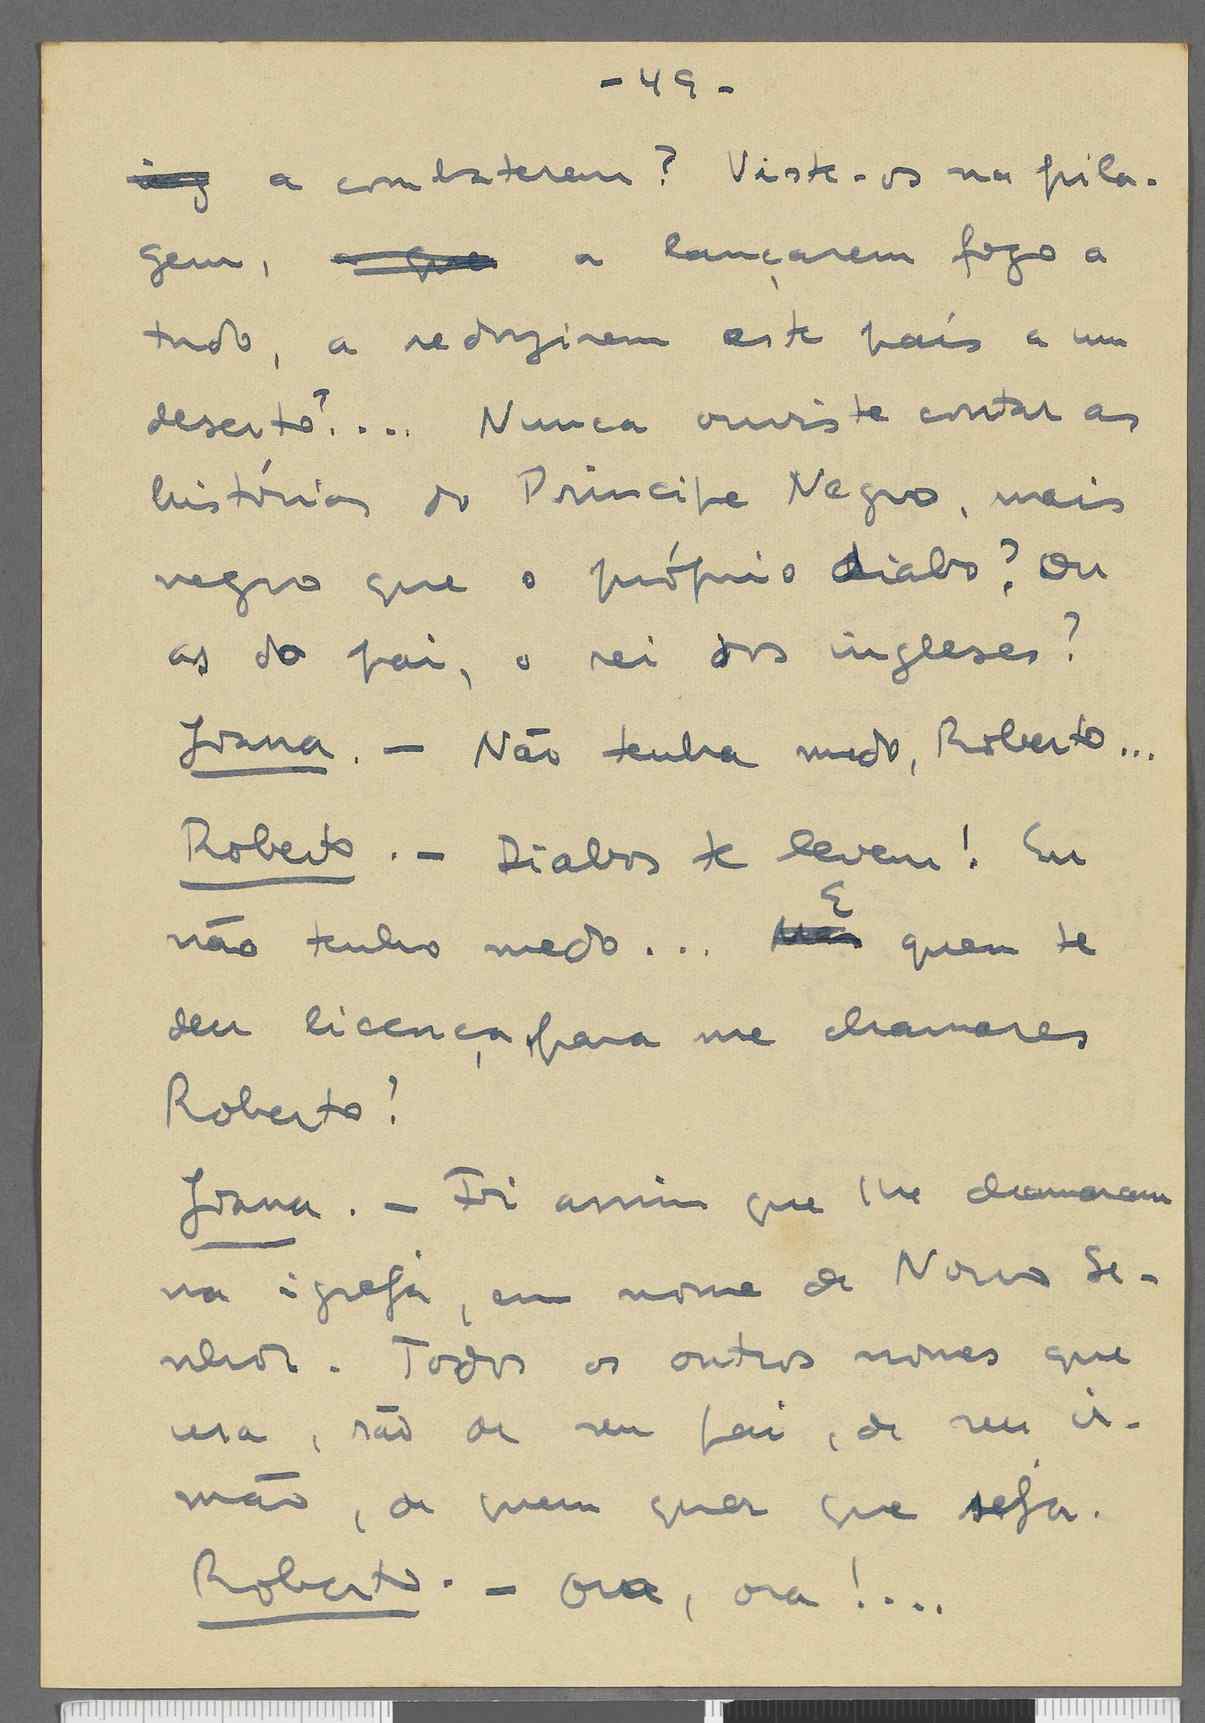 - 49 -
a combaterem? Viste-os na pila-
gem, a lançarem fogo a
tudo, a reduzirem este país a um
deserto?.... Nunca ouviste contar as
histórias do Principe Negro, mais
negro que o próprio diabo? Ou
as do pai, o rei dos ingleses?
Joana. — Não tenha medo, Roberto...
Roberto. — Diabos te levem! Eu
não tenho medo... E quem te
deu licença para me chamares
Roberto?
Joana. — Foi assim que lhe chamaram
na igreja, em nome de Nosso Se-
nhor. Todos os outros nomes que
usa, são de seu pai, de seu ir-
mão, de quem quer que seja.
Roberto. — Ora, ora!....